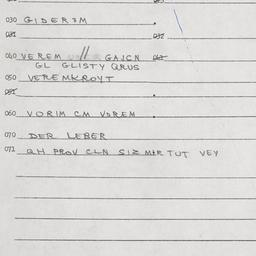 030 GIDERIM
031 032
040 VEREM // GAJCN 042
GL GLISTY QRUS
050 VEREMKROYT
051
060 VORIM CM VEREM
070 DER LEBER
071 QH PROV CLN SIZ MIR TUT VEY